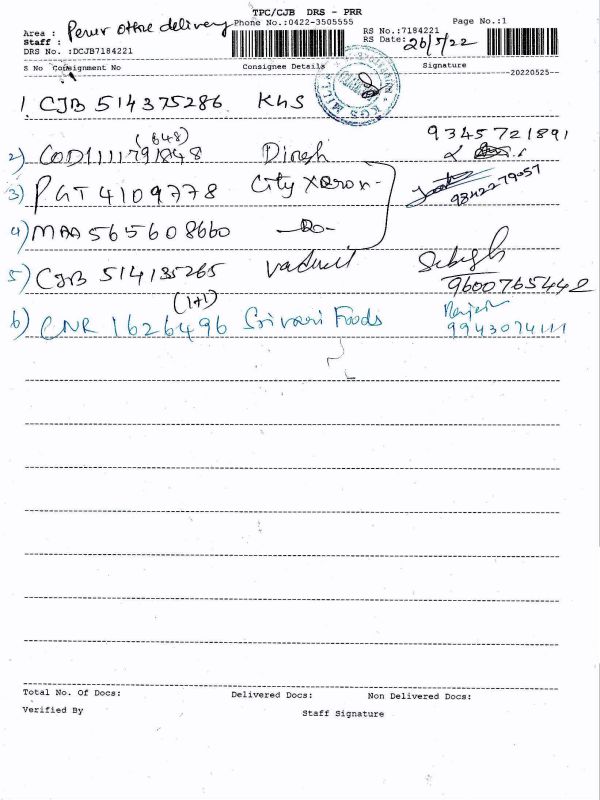 TPC/CJB DRS - PRR
Phone No.:0422-3505555
Page No.:1
Area : Perur office delivery
Staff :
DRS No. :DCJB7184221
RS No.:7184221
RS Date: 26/5/22
S No Consignment No Consignee Details Signature
20220525
1 CJB 514375286 KGS
9345721891
(848)
2) COD1111791848 Dinesh
3) PGT 4109778 City Xerox
9842279057
4) MAA 565608660 -Do-
5) CJB 514135265
9600765442
(1+1)
6) CNR 1626496 Srivari Foods
9943074111
Total No. Of Docs: Delivered Docs: Non Delivered Docs:
Verified By Staff Signature